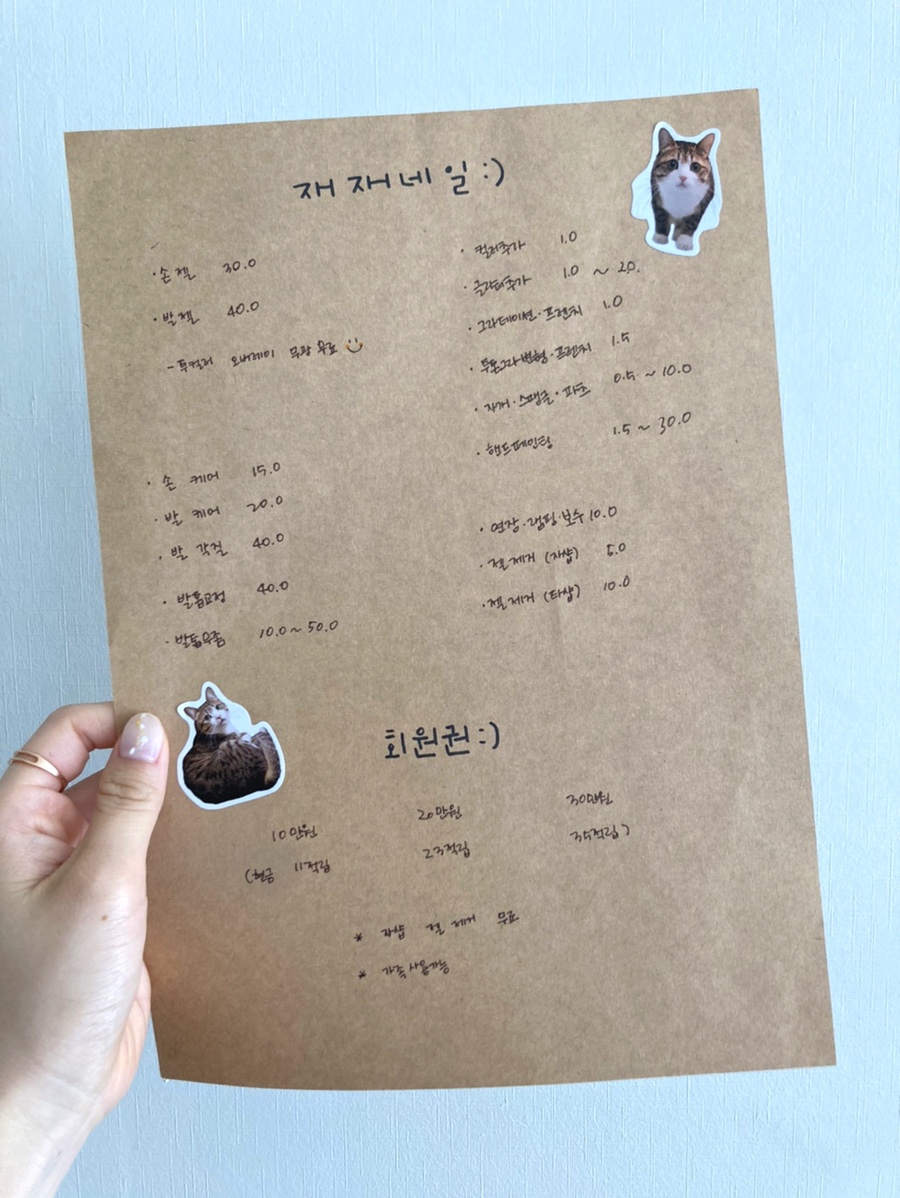 재재네일 :)
· 손젤 30.0
· 발젤 40.0
- 투컬러 오버레이 무광 무료
· 손 케어 15.0
· 발 케어 20.0
· 발 각질 40.0
· 발톱교정 40.0
· 발톱무좀 10.0 ~ 50.0
· 컬러추가 1.0
· 글리터추가 1.0 ~ 2.0.
· 그라데이션 · 프렌치 1.0
· 투톤그라 변형 · 프렌치 1.5
· 자개 · 스팽글 · 파츠 0.5 ~ 10.0
· 핸드페인팅 1.5 ~ 30.0
· 연장 · 랩핑 · 보수 10.0
· 젤제거 (자샵) 5.0
· 젤제거 (타샵) 10.0
회원권 :)
10만원 20만원 30만원
(현금 11적립 23적립 35적립)
* 자샵 젤 제거 무료
* 가족사용가능